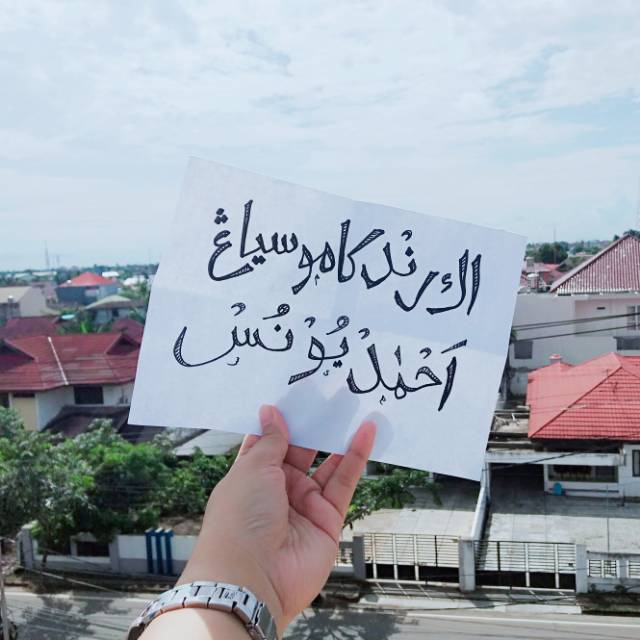 اك رنْد كامو سياڠ
اَحْمَدْ يُوْنُسْ